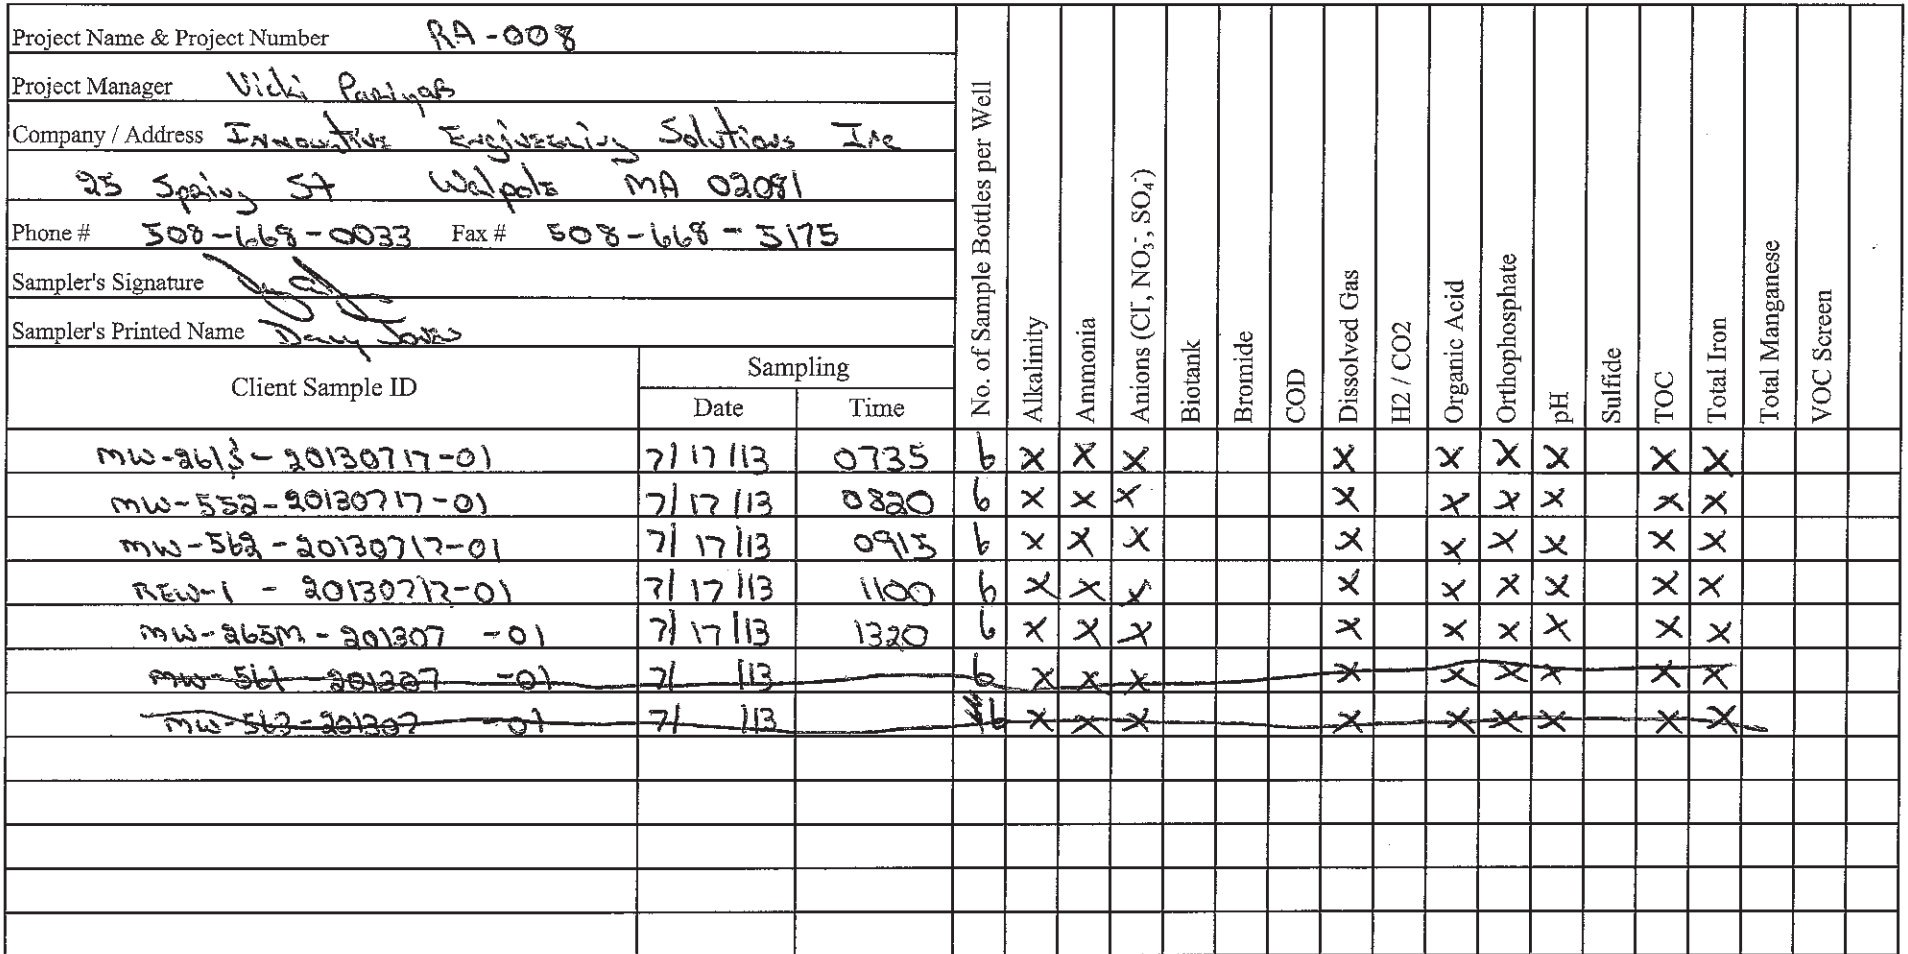 Project Name & Project Number RA-008
Project Manager Vicki
Company / Address Innovative Engineering Solutions Inc
25 Spring St Walpole MA 02081
Phone # 508-668-0033 Fax # 508-668-5175
Sampler's Signature
Sampler's Printed Name
Client Sample ID
Sampling
Date Time
No. of Sample Bottles per Well
Alkalinity
Ammonia
Anions (Cl⁻, NO₃⁻, SO₄⁻)
Biotank
Bromide
COD
Dissolved Gas
H2 / CO2
Organic Acid
Orthophosphate
pH
Sulfide
TOC
Total Iron
Total Manganese
VOC Screen
MW-261S-20130717-01 7/17/13 0735 6 X X X X X X X X X
MW-552-20130717-01 7/17/13 0820 6 X X X X X X X X X
MW-562-20130717-01 7/17/13 0915 6 X X X X X X X X X
REW-1 - 20130717-01 7/17/13 1100 6 X X X X X X X X X
MW-265M-201307 -01 7/17/13 1320 6 X X X X X X X X X
MW-561-201307 -01 7/ /13 6 X X X X X X X X X
MW-563-201307 -01 7/ /13 6 X X X X X X X X X